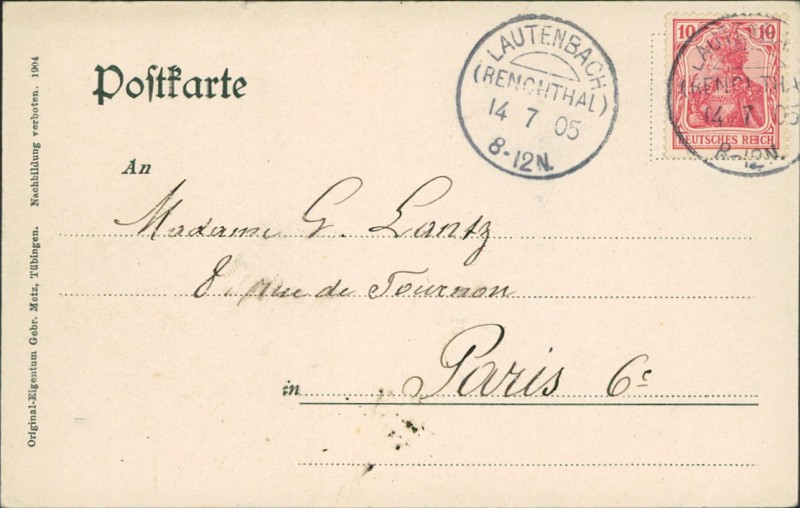 Postkarte
LAUTENBACH
(RENCHTHAL)
14 7 05
8-12N.
10 10
DEUTSCHES REICH
LAUTENBACH
(RENCHTHAL)
14 7 05
8-12N.
An
Madame G. Lantz
8. rue de Tournon
in Paris 6e
Original-Eigentum Gebr. Metz, Tübingen. Nachbildung verboten. 1904